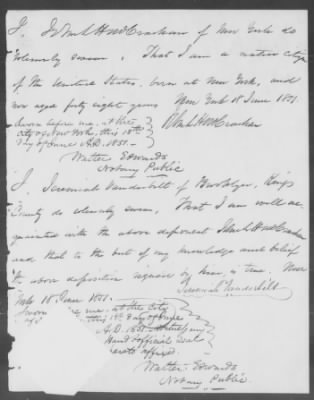 I, John H McCracken of New York do
solemnly swear, That I am a native citizen
of the United States, born at New York, and
now aged forty eight years New York 18 June 1851.
Sworn before me, at the
City of New York, this 18th
day of June A.D. 1851.
John H McCracken
Walter Edwards
Notary Public
I, Jeremiah Vanderbilt of Brooklyn, Kings
County do solemnly swear, That I am well ac-
quainted with the above deponent John H McCracken
and that to the best of my knowledge and belief
the above deposition signed by him, is true. New
York 18 June 1851.
Jeremiah Vanderbilt
me, at the City
this 18th day of June
A.D. 1851
Hand & official Seal
Walter Edwards
Notary Public.